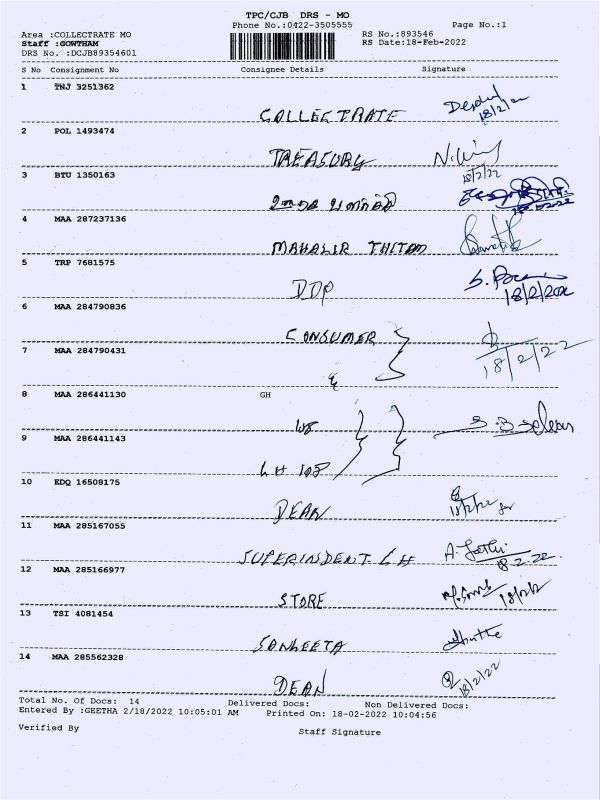 TPC/CJB DRS - MO
Phone No.:0422-3505555 Page No.:1
Area :COLLECTRATE MO RS No.:893546
Staff :GOWTHAM RS Date:18-Feb-2022
DRS No. :DCJB89354601
S No Consignment No Consignee Details Signature
1 TNJ 3251362
COLLECTRATE 18/2/22
2 POL 1493474
TREASURY
18/2/22
3 BTU 1350163
4 MAA 287237136
MAHALIR THITAM
5 TRP 7681575
DDP 18/2/2022
6 MAA 284790836
CONSUMER
7 MAA 284790431
18/2/22
8 MAA 286441130 GH
9 MAA 286441143
GH
10 EDQ 16508175
DEAN 18/2/22
11 MAA 285167055
SUPERINDENT GH 18.2.22
12 MAA 285166977
STORE 18/2/22
13 TSI 4081454
SANGEETA
14 MAA 285562328
DEAN 18/2/22
Total No. Of Docs: 14 Delivered Docs: Non Delivered Docs:
Entered By :GEETHA 2/18/2022 10:05:01 AM Printed On: 18-02-2022 10:04:56
Verified By Staff Signature